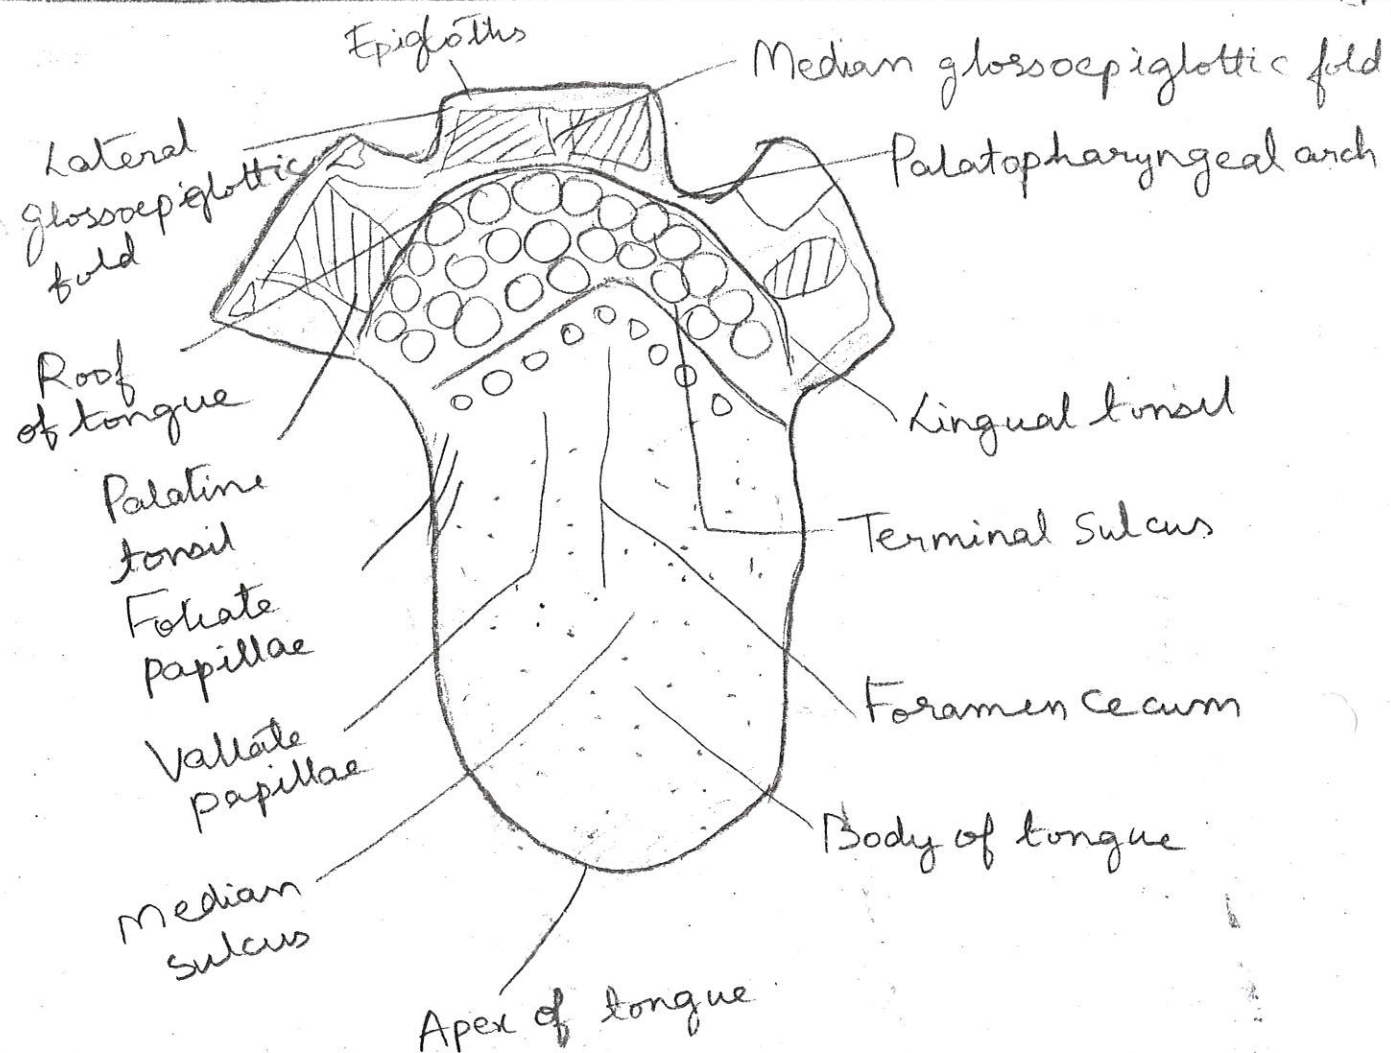 Epiglottis
Median glossoepiglottic fold
Lateral
glossoepiglottic
fold
Palatopharyngeal arch
Roof
of tongue
Lingual tonsil
Palatine
tonsil
Terminal Sulcus
Foliate
papillae
Foramen Cecum
Vallate
papillae
Body of tongue
Median
sulcus
Apex of tongue